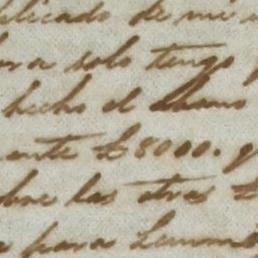 plicado de mi
ra solo tengo
hecho el
ante £8000.
bre las otras £
para